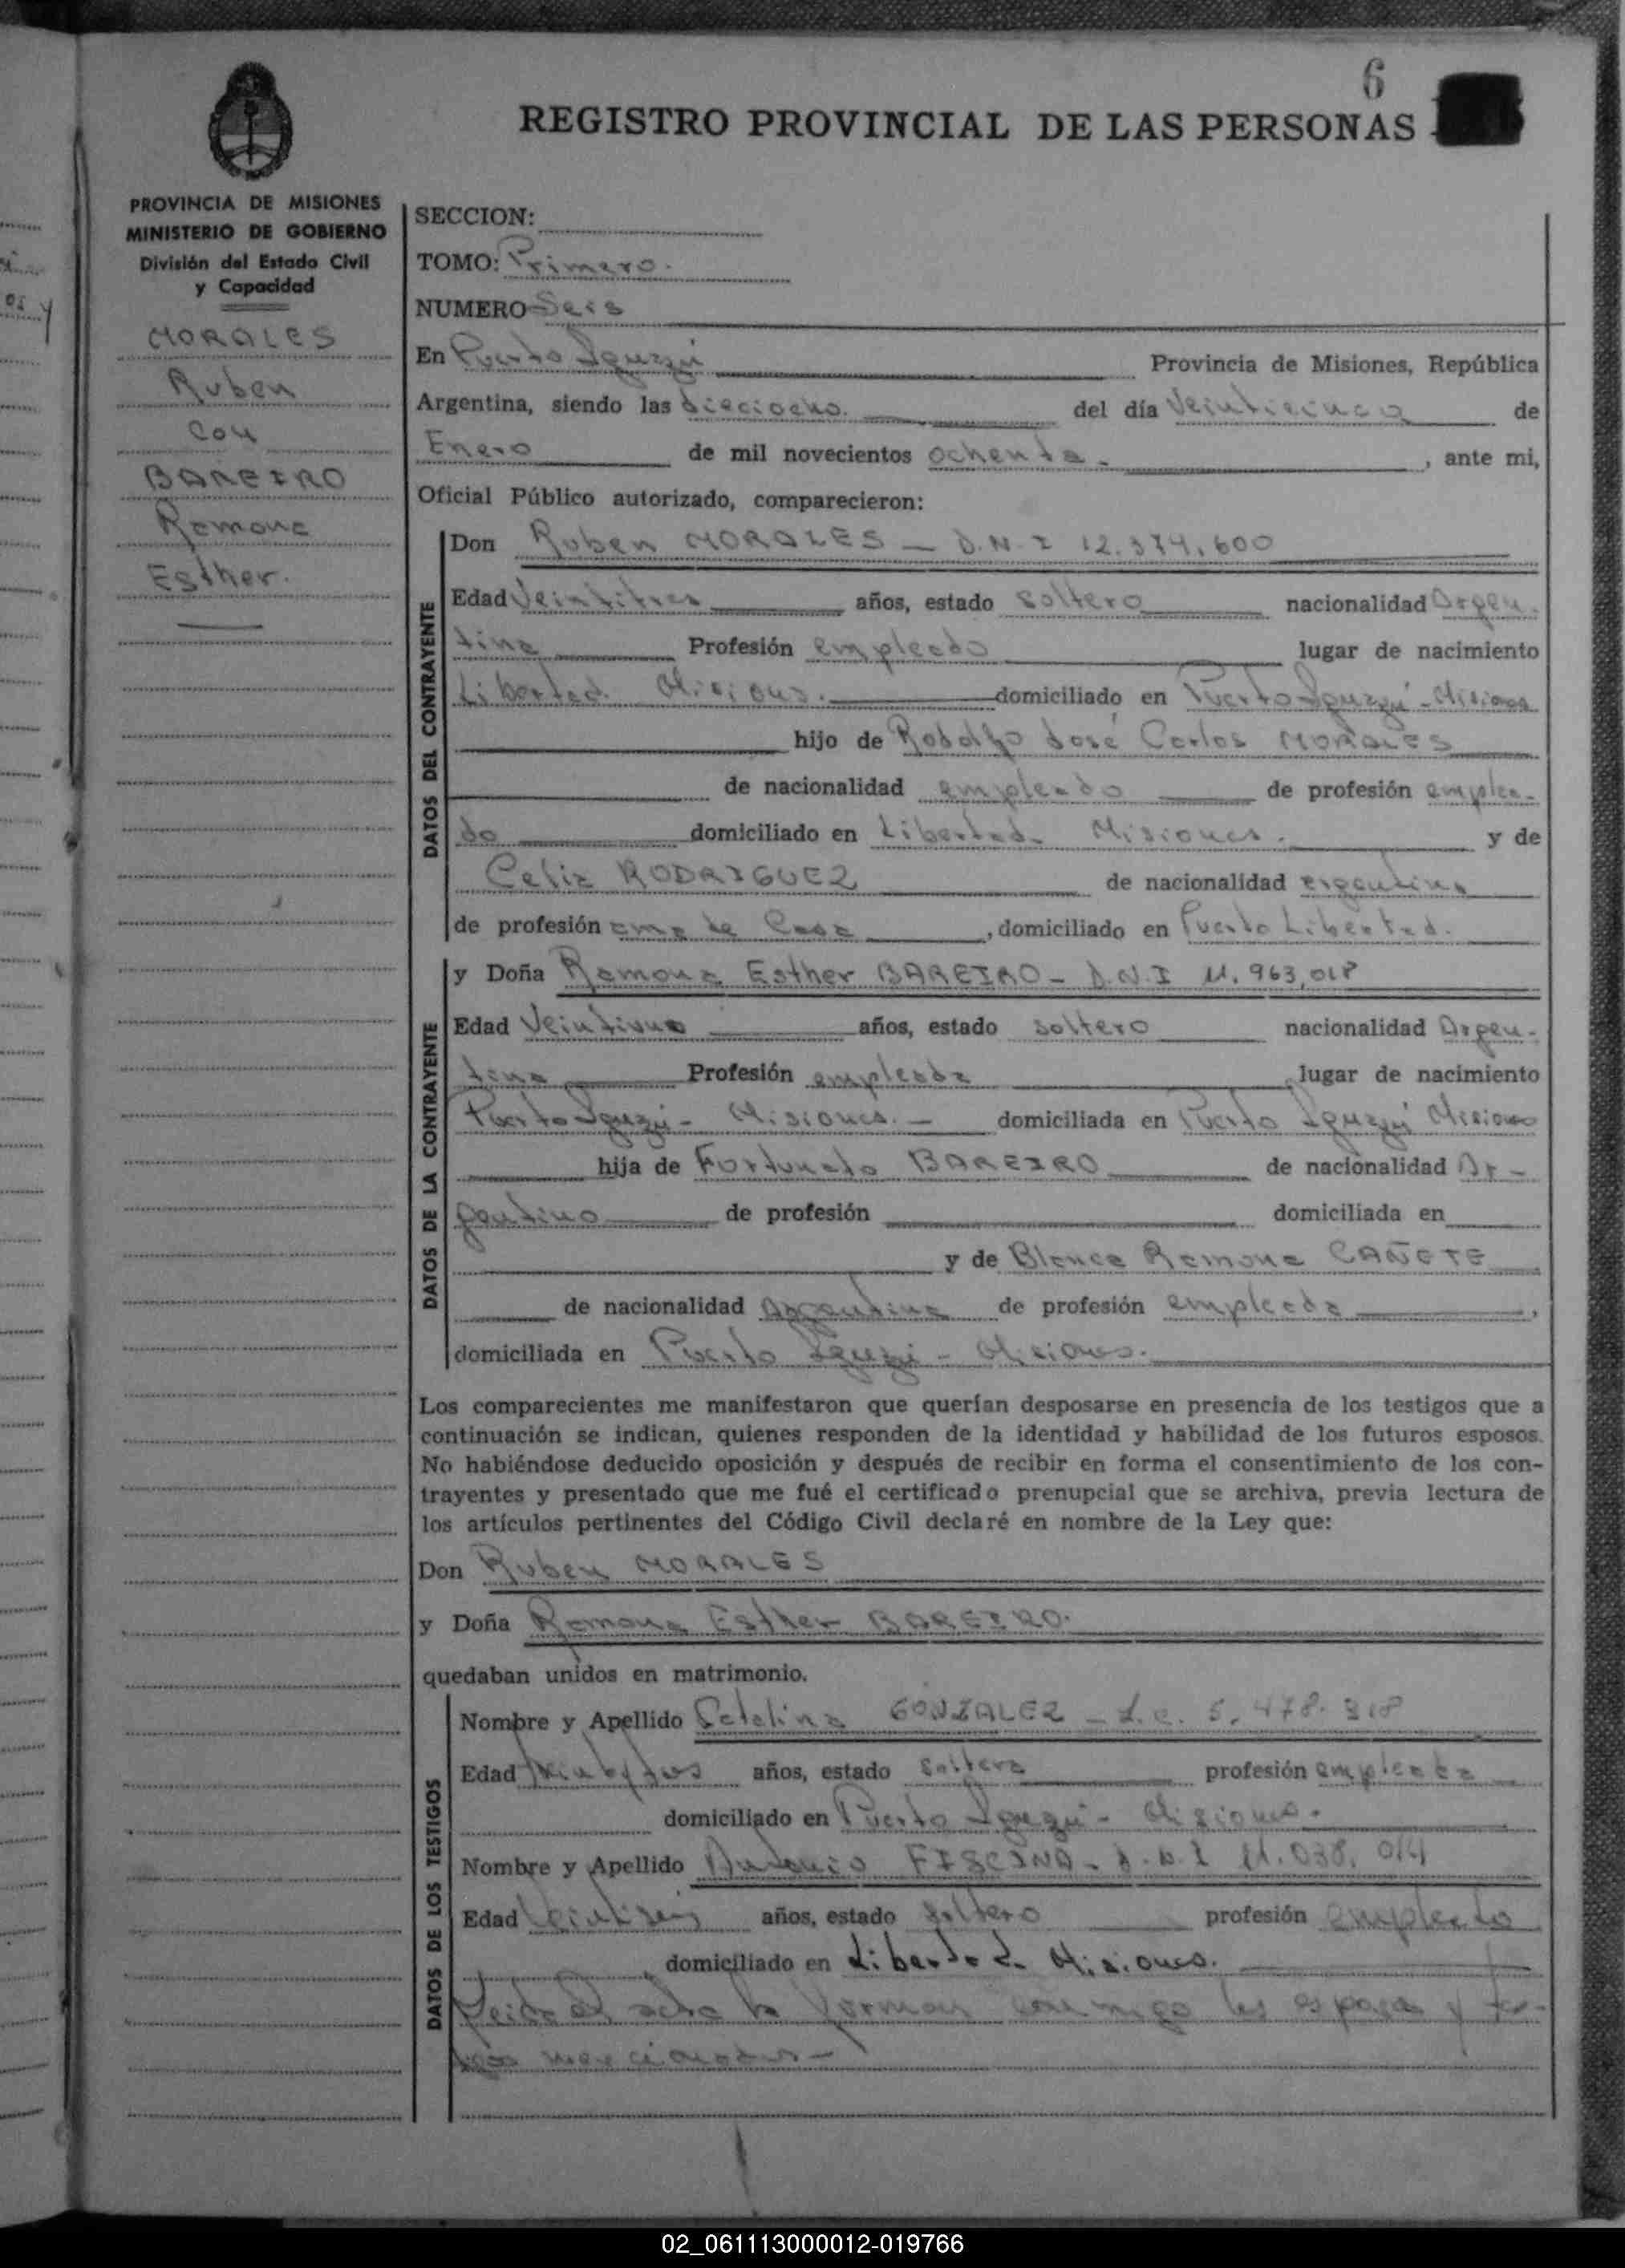 6
REGISTRO PROVINCIAL DE LAS PERSONAS
PROVINCIA DE MISIONES
MINISTERIO DE GOBIERNO
División del Estado Civil
y Capacidad
MORALES
Ruben
con
BAREIRO
Ramona
Esther.
SECCION:
TOMO: Primero.
NUMERO Seis
En Puerto Iguazú Provincia de Misiones, República
Argentina, siendo las dieciocho. del día Veinticinco de
Enero de mil novecientos ochenta - , ante mi,
Oficial Público autorizado, comparecieron:
DATOS DEL CONTRAYENTE
Don Ruben MORALES - D.N.I 12.374.600
Edad Veintitres años, estado soltero nacionalidad Argen-
tina Profesión empleado lugar de nacimiento
Libertad Misiones. domiciliado en Puerto Iguazú - Misiones
hijo de Rodolfo José Carlos MORALES
de nacionalidad empleado de profesión emplea-
do domiciliado en Libertad - Misiones. y de
Celia RODRIGUEZ de nacionalidad argentina
de profesión ama de Casa , domiciliado en Puerto Libertad.
DATOS DE LA CONTRAYENTE
y Doña Ramona Esther BAREIRO - D.N.I 11.963,018
Edad años, estado soltero nacionalidad Argen-
tina Profesión empleada lugar de nacimiento
Puerto Iguazú - Misiones. - domiciliada en Puerto Iguazú Misiones
hija de Fortunato BAREIRO de nacionalidad Ar-
gentino de profesión domiciliada en
y de Blanca Ramona CAÑETE
de nacionalidad Argentina de profesión empleada ,
domiciliada en Puerto Iguazú - Misiones.
Los comparecientes me manifestaron que querían desposarse en presencia de los testigos que a
continuación se indican, quienes responden de la identidad y habilidad de los futuros esposos.
No habiéndose deducido oposición y después de recibir en forma el consentimiento de los con-
trayentes y presentado que me fué el certificado prenupcial que se archiva, previa lectura de
los artículos pertinentes del Código Civil declaré en nombre de la Ley que:
Don Ruben MORALES
y Doña Ramona Esther BAREIRO.
quedaban unidos en matrimonio.
DATOS DE LOS TESTIGOS
Nombre y Apellido Catalina GONZALEZ - L.C. 5.478.318
Edad años, estado soltera profesión empleada
domiciliado en Puerto Iguazú - Misiones.
Nombre y Apellido Antonio FISCINA - D.N.I 11.038.014
Edad Veintiseis años, estado soltero profesión empleado
domiciliado en Libertad - Misiones.
Leida el acta la firman conmigo los esposos y tes-
tigos mencionados -
02_061113000012-019766